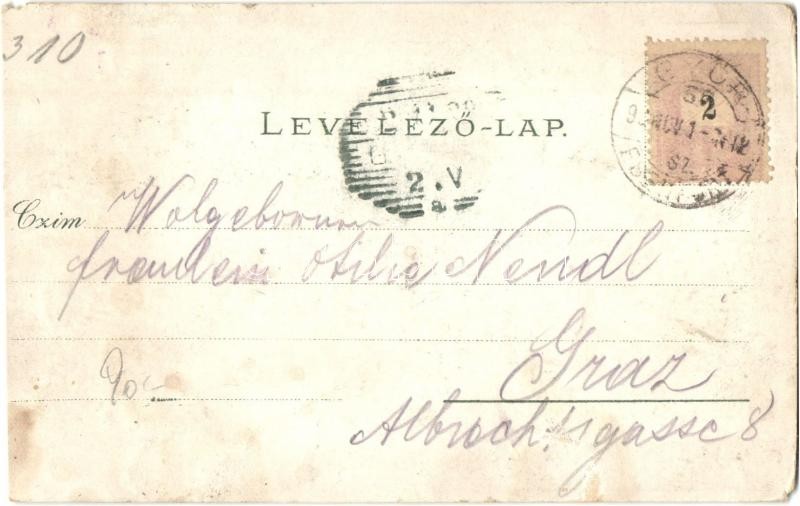 310
LEVELEZŐ-LAP.
2
2 . V
Czim Wolgeborun
fräulein Otilie Nendl
Graz
Albrechtgasse 8
90.-